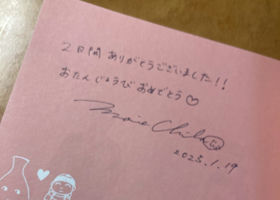 2日間 ありがとうございました!!
おたんじょうび おめでとう♡
2025.1.19